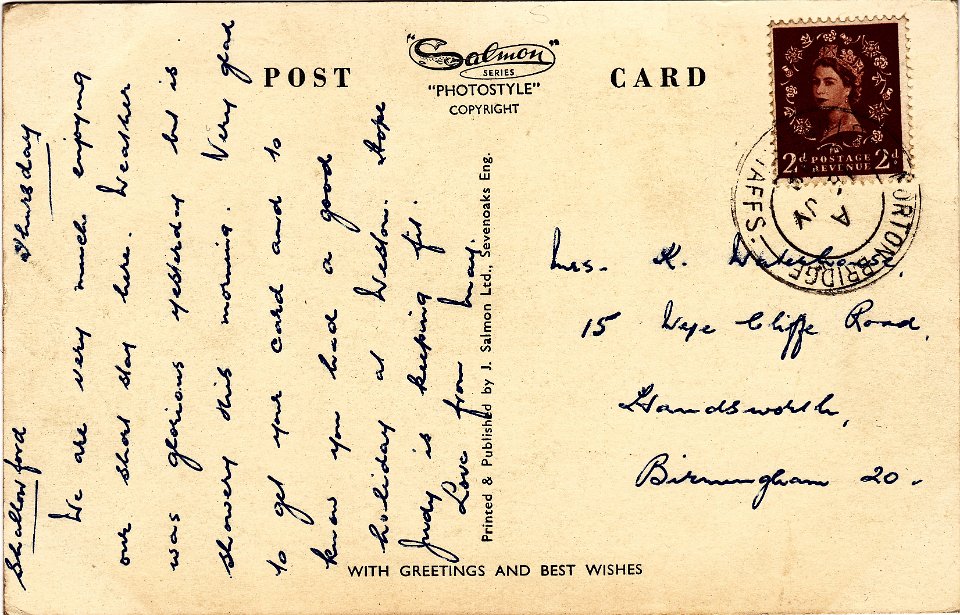 POST CARD
"Salmon"
SERIES
"PHOTOSTYLE"
COPYRIGHT
2d POSTAGE REVENUE 2d
NORTON BRIDGE
STAFFS.
A
Shallowford Thursday
We are very much enjoying
our short stay here. Weather
was glorious yesterday but is
showery this morning. Very glad
to get your card and to
know you had a good
holiday at Weston. Hope
Judy is keeping fit.
Love from May.
Printed & Published by J. Salmon Ltd., Sevenoaks Eng.
Mrs. K. Waterhouse,
15 Wye Cliffe Road,
Handsworth,
Birmingham 20.
WITH GREETINGS AND BEST WISHES